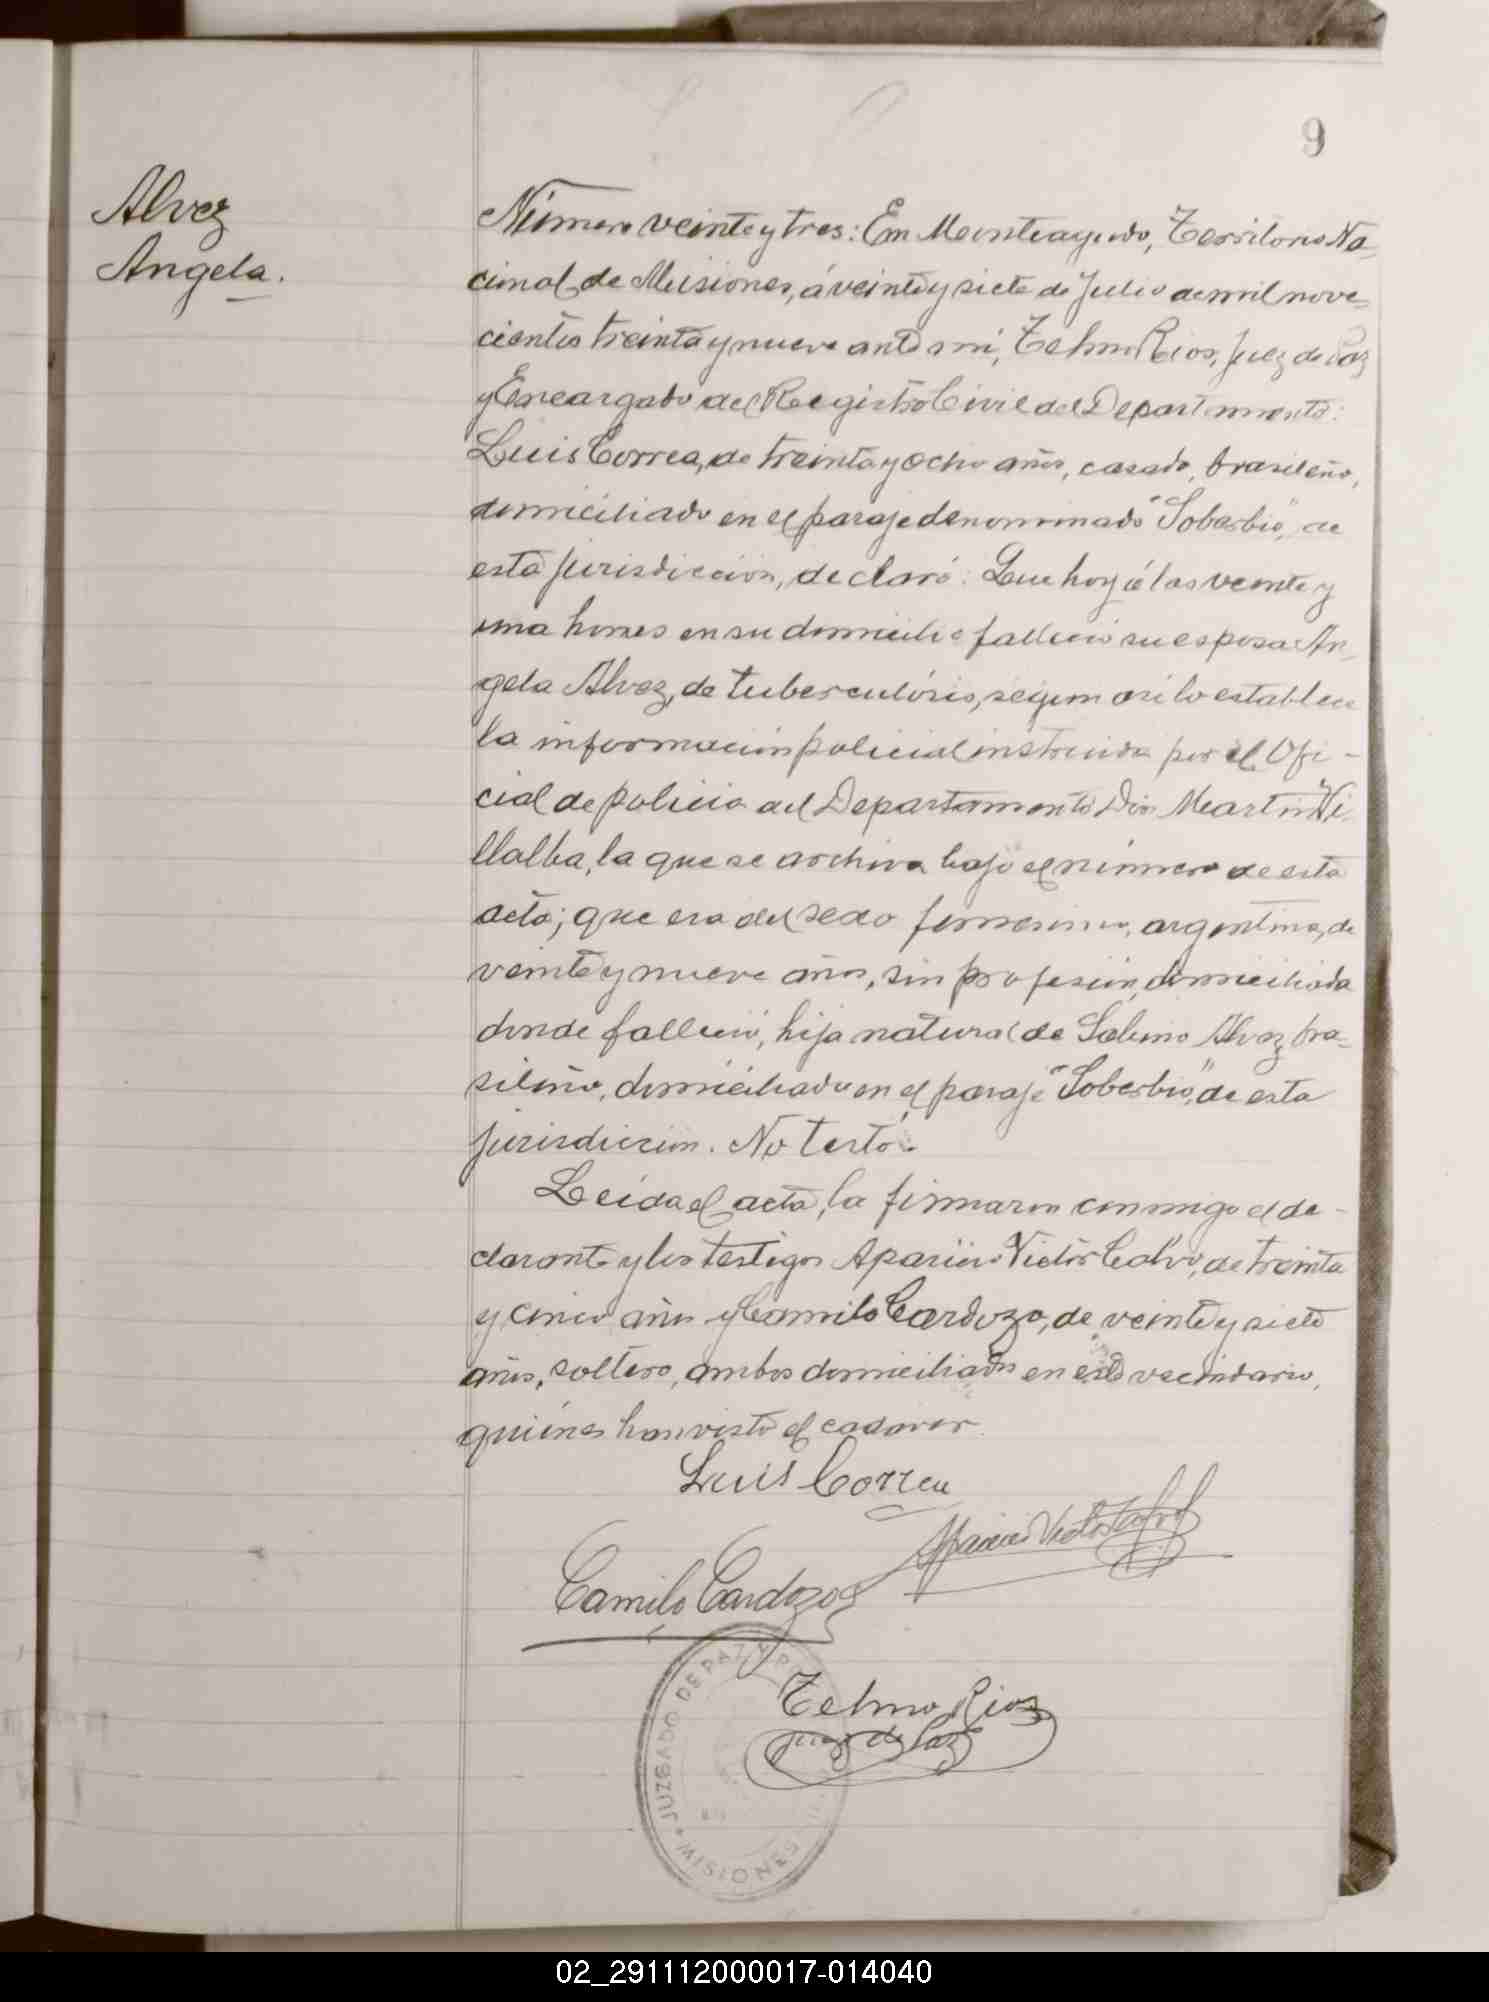 9
Alvez
Angela.
Número veinte y tres: En Monteagudo, Territorio Na-
cional de Misiones, á veinte y siete de Julio de mil nove-
cientos treinta y nueve ante mi, Telmo Rios, Juez de Paz
y Encargado del Registro Civil del Departamento:
Luis Correa, de treinta y ocho años, casado, brasileño,
domiciliado en el paraje denominado "Soberbio", de
esta jurisdicción, declaró: Que hoy á las veinte y
una horas en su domicilio falleció su esposa An-
gela Alvez, de tuberculósis, segun asi lo establece
la información policial instruida por el Ofi-
cial de policia del Departamento Don Martin Vi-
llalba, la que se archiva bajo el número de esta
acta; que era del sexo femenino, argentina, de
veinte y nueve años, sin profesión, domiciliada
donde falleció, hija natural de Alvez, bra-
sileño, domiciliado en el paraje "Soberbio", de esta
jurisdiccion. No testó.
Leida el acta, la firmaron conmigo el de-
clarante y los testigos Aparicio Victor Calvo, de treinta
y cinco años y Camilo Cardozo, de veinte y siete
años, soltero, ambos domiciliados en este vecindario,
quiénes han visto el cadaver.
Luis Correa
Aparicio Victor Calvo
Camilo Cardozo
Telmo Rios
Juez de Paz
JUZGADO DE PAZ
MISIONES
02_291112000017-014040